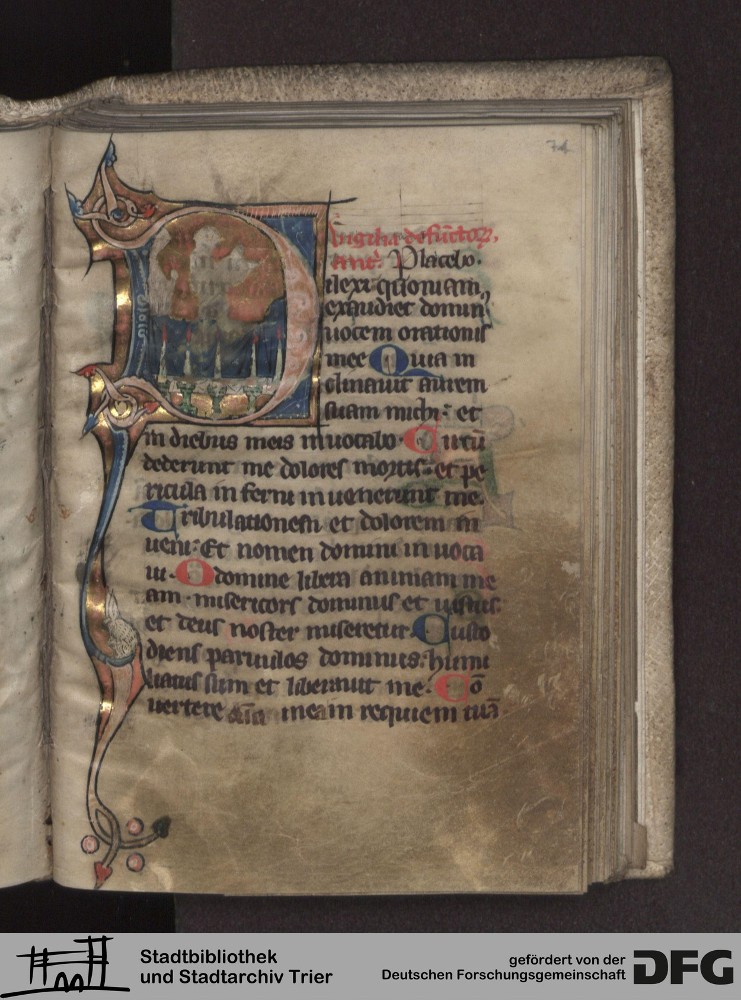 74
vigilia defūctoꝝ.
ant̄. Placebo.
D ilexi quoniam
exaudiet domin᷒
uocem orationis
mee Quia in
clinauit aurem
suam michi: et
in diebus meis inuocabo. Circū
dederunt me dolores mortis: et pe
ricula inferni inuenerunt me.
Tribulationem et dolorem in
ueni: Et nomen domini inuoca
ui. O domine libera animam me
am. misericors dominus et iustus:
et deus noster miseretur Custo
diens paruulos dominus: humi
liatus sum et liberauit me. Cō
uertere aīa mea in requiem tuā
Stadtbibliothek
und Stadtarchiv Trier
gefördert von der
Deutschen Forschungsgemeinschaft
DFG